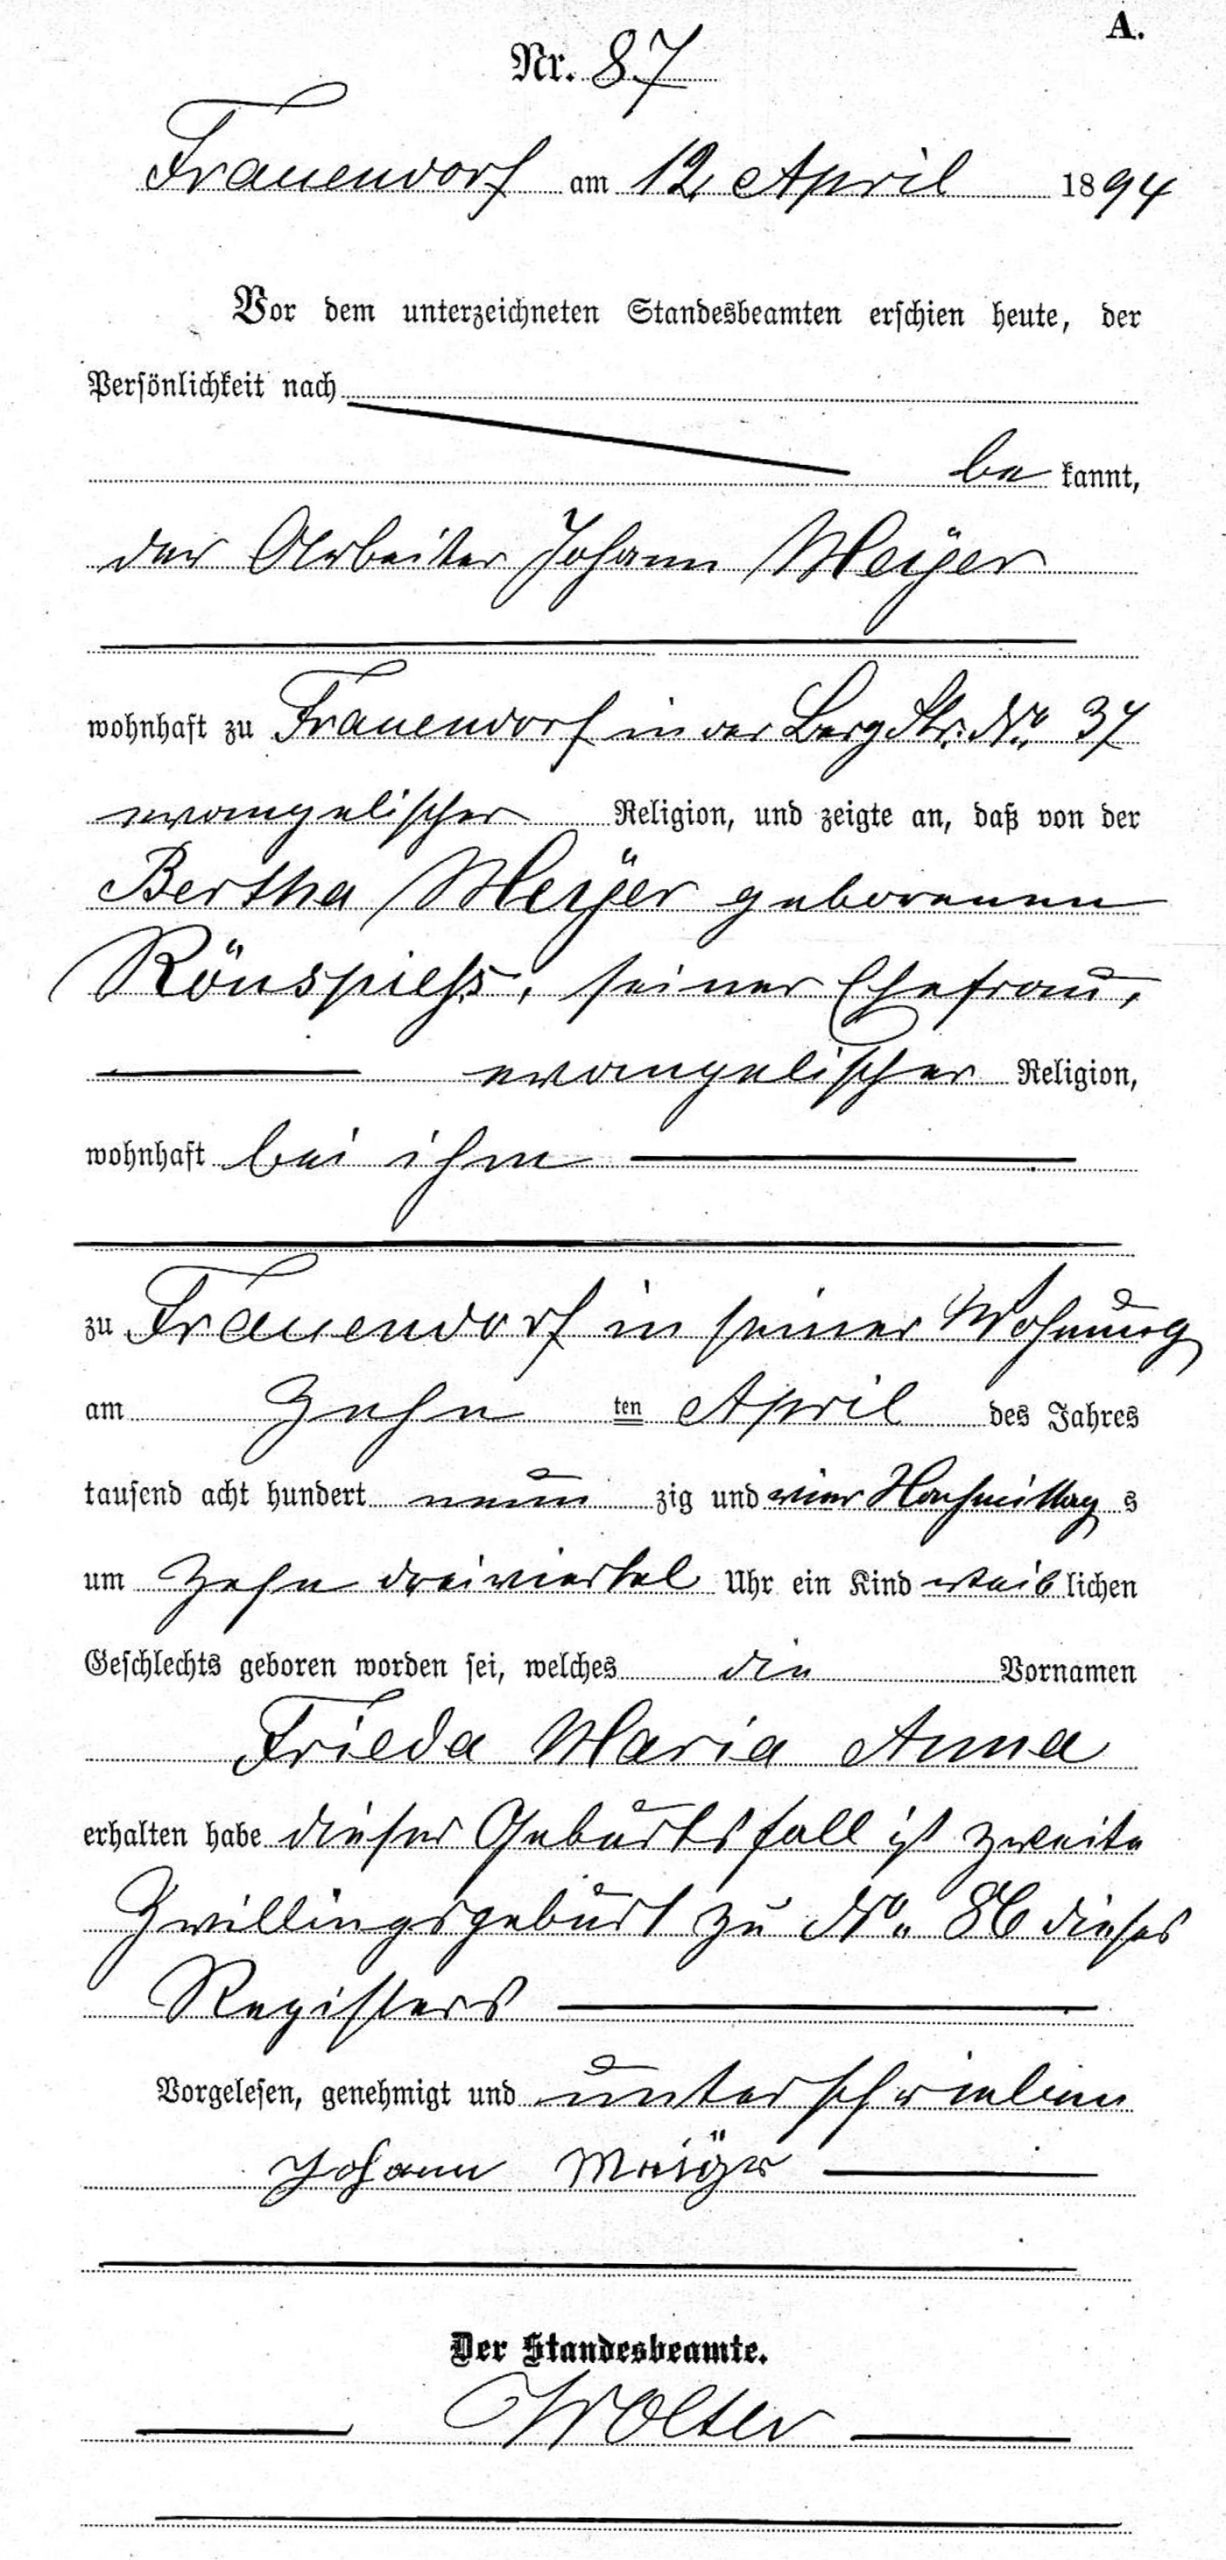 A.
Nr. 87
Frauendorf am 12 April 1894
Vor dem unterzeichneten Standesbeamten erschien heute, der
Persönlichkeit nach
be kannt,
der Arbeiter Johann Meÿer
wohnhaft zu Frauendorf in der Berg Str. No. 37
evangelischer Religion, und zeigte an, daß von der
Bertha Meÿer geborenen
Rönspiess, seiner Ehefrau,
evangelischer Religion,
wohnhaft bei ihm
zu Frauendorf in seiner Wohnung
am Zehn ten April des Jahres
tausend acht hundert neun zig und vier Nachmittag s
um zehn dreiviertel Uhr ein Kind weib lichen
Geschlechts geboren worden sei, welches die Vornamen
Frieda Maria Anna
erhalten habe dieser Geburtsfall ist zweite
Zwillingsgeburt zu No. 86 dieses
Registers
Vorgelesen, genehmigt und unterschrieben
Johann Meiÿer
Der Standesbeamte.
Wolter